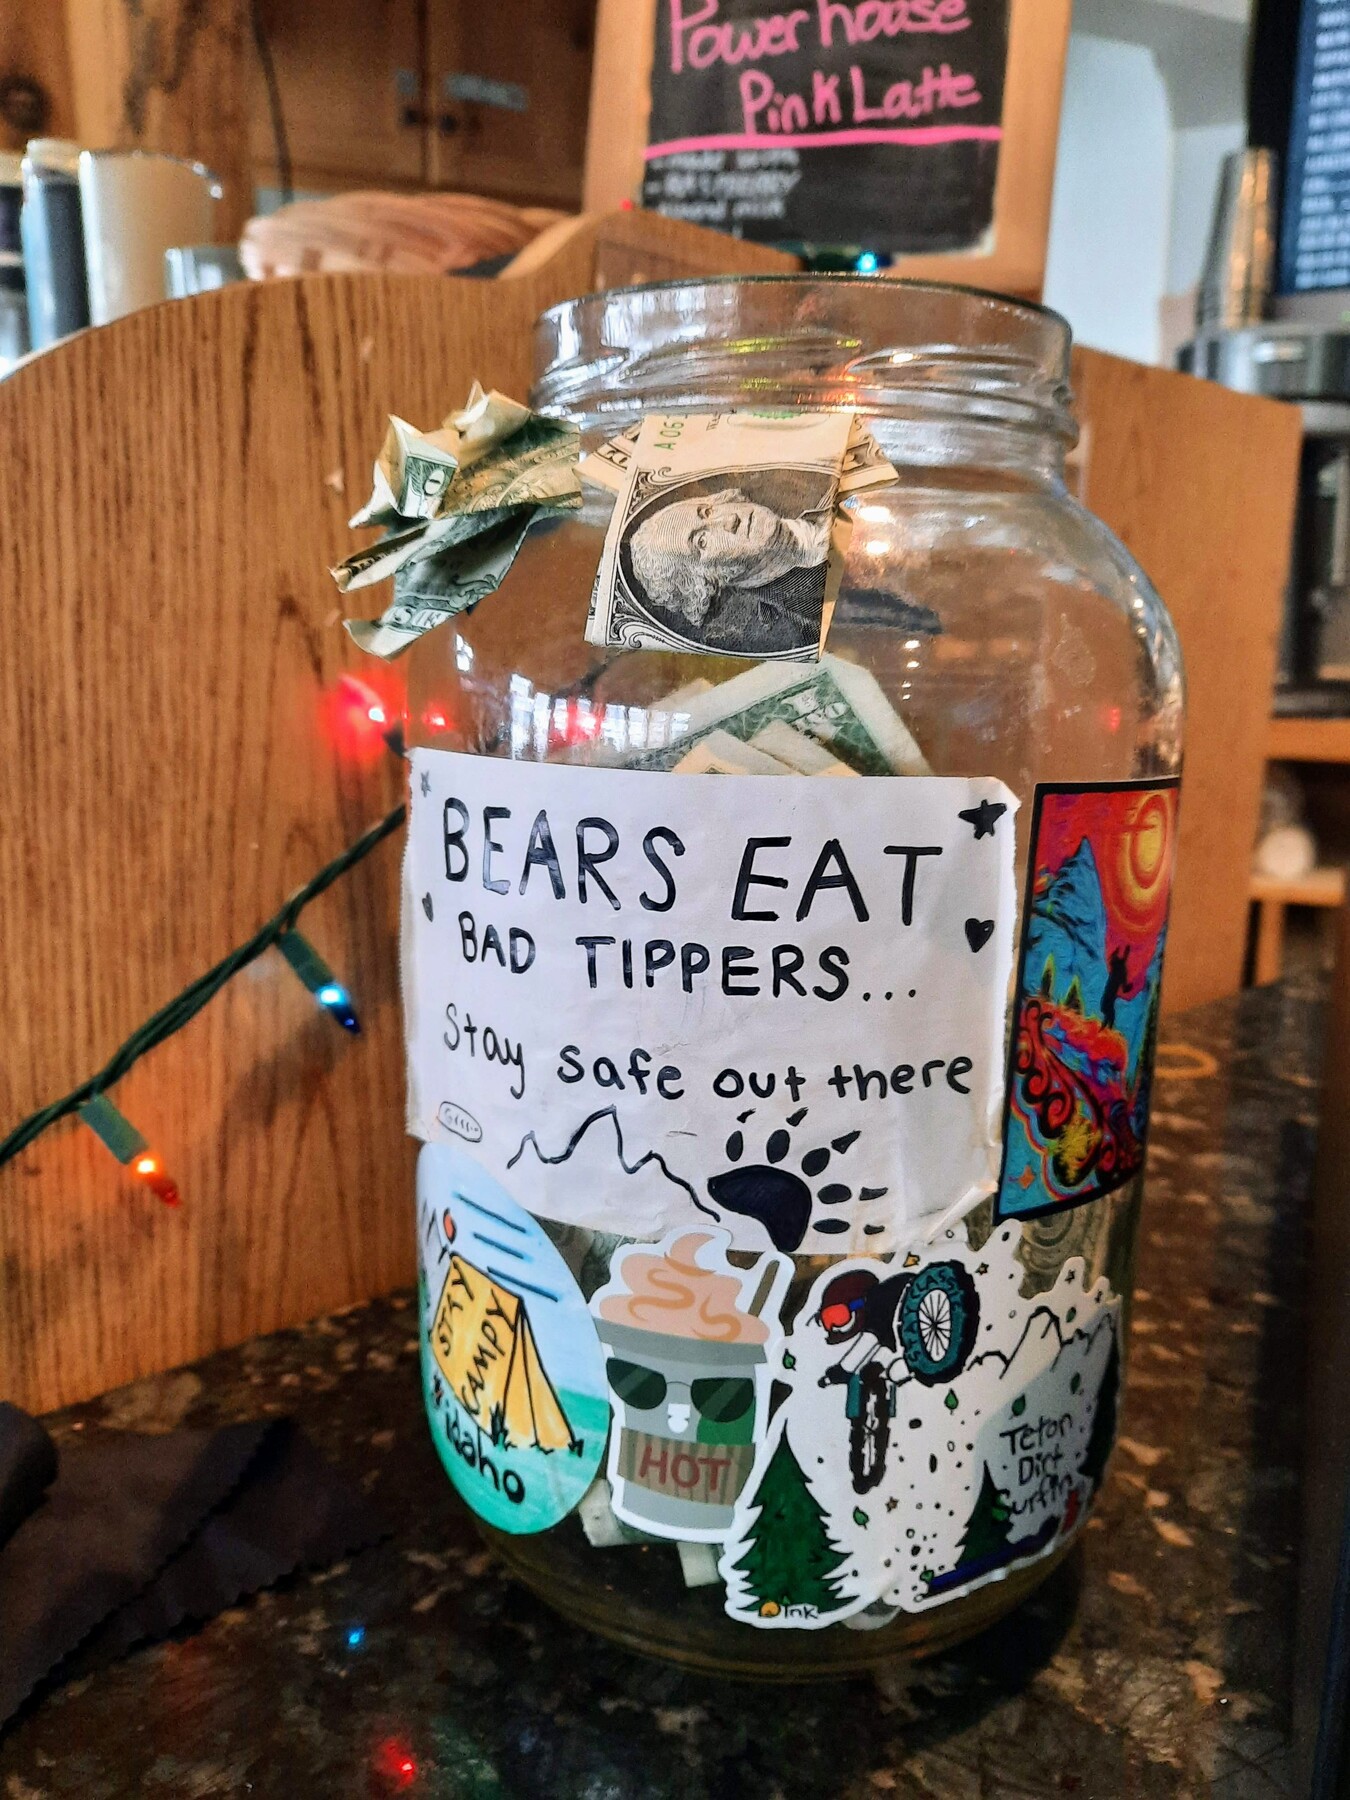 Powerhouse
Pink Latte
A 06
BEARS EAT
BAD TIPPERS...
Stay safe out there
STAY
CAMPY
idaho
HOT
STAY CLASSY
Teton
Dirt
Surfin
Ink